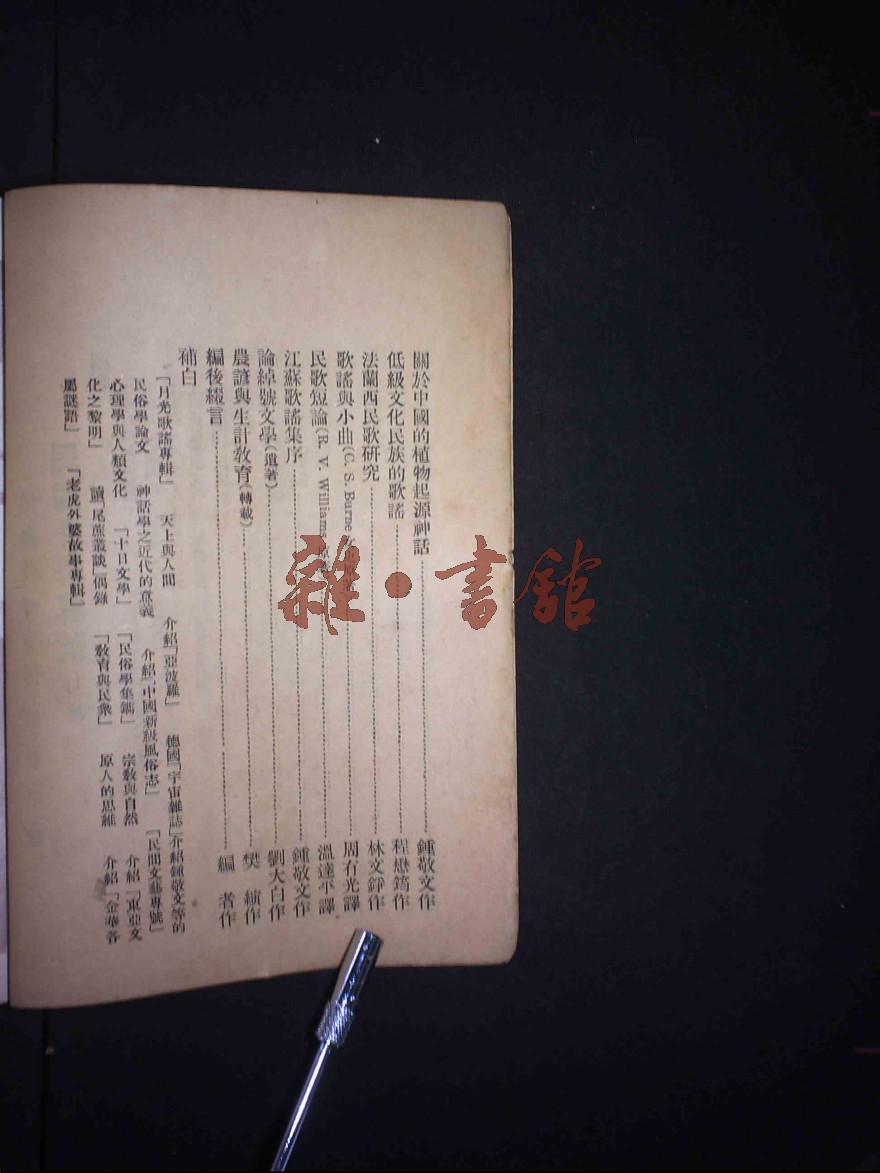 關於中國的植物起源神話……鍾敬文作
低級文化民族的歌謠……程懋筠作
法蘭西民歌研究……林文錚作
歌謠與小曲(C. S. Burne……周有光譯
民歌短論(R. V. Williams……溫達平譯
江蘇歌謠集序……鍾敬文作
論綽號文學(遺著)……劉大白作
農諺與生計教育(轉載)……樊縯作
編後綴言……編者作
補白
「月光歌謠專輯」 天上與人間 介紹「亞波羅」 德國「宇宙雜誌」介紹鍾敬文等的
民俗學論文 神話學之近代的意義 介紹「中國新級風俗志」 「民間文藝專號」
心理學與人類文化 「十日文學」 「民俗學集鐫」 宗教與自然 介紹「東亞文
化之黎明」 讀「尾蕉叢談」偶錄 「教育與民衆」 原人的思維 介紹「金華各
屬謎語」 「老虎外婆故事專輯」
雜·書館